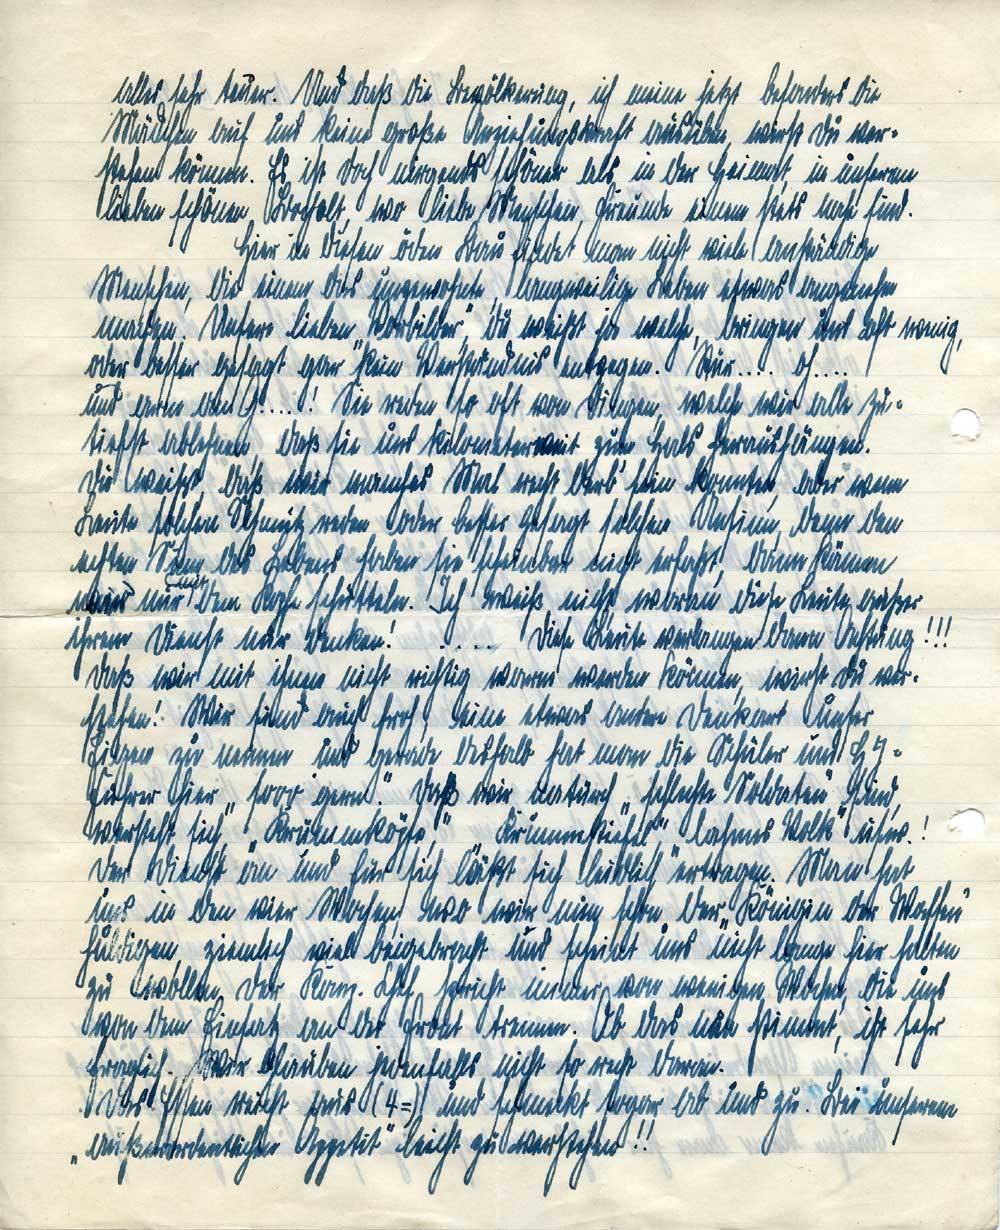 alles sehr teuer. Und daß die Bevölkerung, ich meine jetzt besonders die
Mädchen auf uns keine große Anziehungskraft ausüben, wirst Du ver-
stehen können. Es ist doch nirgends schöner als in der Heimat, in unserem
lieben schönen Bocholt, wo liebe Menschen, Freunde einem stets nah sind.
Hier in diesen öden Bau findet man nicht viele anständige
Menschen, die einem das ungewohnte, langweilige Leben etwas angenehm
machen. Unsere lieben „Vorbilder", Du weißt ja welche, bringen uns oft wenig,
oder besser gesagt gar kein Verständnis entgegen. Nur....
und dann den G....! Sie reden so oft von Dingen, welche wir alle zu-
tiefst ablehnen, daß sie uns kilometerweit zum Hals heraushängen.
Du weißt, daß wir manches Mal recht derb sein konnten, aber wenn
Leute solchen Schmutz reden oder besser gesagt solchen Unsinn, denn den
echten Sinn des Lebens haben sie scheinbar nicht erfaßt, dann können
wir nur den Kopf schütteln. Ich weiß nicht woran diese Leute außer
ihrem Dienst nur denken! .... Diese Leute verlangen dann Achtung!!!
Daß wir mit ihnen nicht richtig warm werden können, wirst Du ver-
stehen! Wir sind auch froh, eine etwas andere Denkart unser
Eigen zu nennen und gerade deshalb hat man die Schüler und HJ-
Führer hier „sooo gern". Daß wir dadurch „schlechte Soldaten" sind,
versteht sich. „Krummköpfe", „Krummstiefel", „lahmes Volk" usw.!
Der Dienst an und für sich läßt sich „leidlich" ertragen. Man hat
uns in den vier Wochen, wo wir nun schon der „Königin der Waffen"
huldigen, ziemlich viel beigebracht und scheint uns nicht lange hier halten
zu wollen. Der Komp. Chef spricht immer von wenigen Wochen, die uns
von dem Einsatz an der Front trennen. Ob das nun stimmt, ist sehr
fraglich. Wir glauben jedenfalls nicht so recht daran.
Das Essen reicht aus (4=)! und schmeckt sogar ab und zu. Bei unserem
„außerordentlichen Appetit" leicht zu verstehen!!